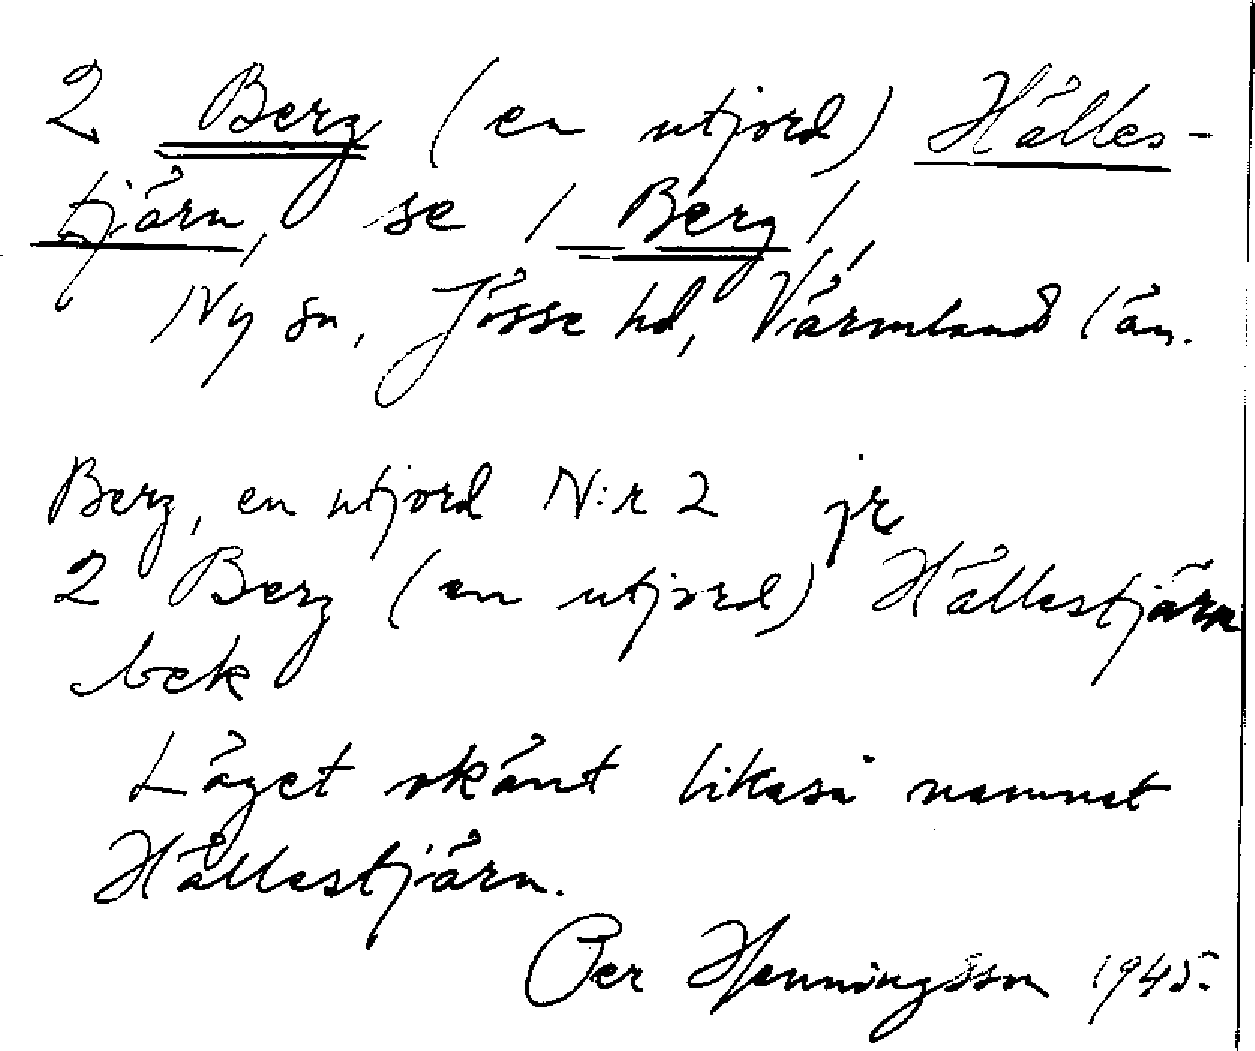 2 Berg (en utjord) Hälles-
tjärn, se 1 Berg!
Ny sn, Jösse hd, Värmlands län.
Berg, en utjord N:r 2 jr
2 Berg (en utjord) Hällestjärn
bek
Läget okänt likaså namnet
Hällestjärn.
Per Henningsson 1945.